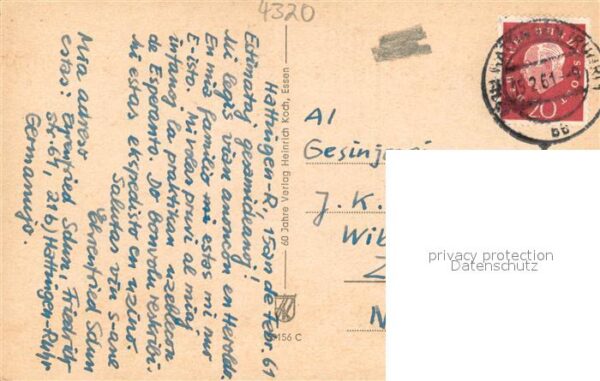 4320
Hattingen-R., 15an de febr. 61
Estimataj gesamideanoj!
Mi legis vian anoncon en Heroldo.
En mia familio mi estas mi nur
E-isto. Mi volas pruvi al miaj
infanoj la praktikan uzeblecon
de Esperanto. Do bonvolu reskribi.
Mi estas ekspedisto en uzino.
Salutas vin s-ane
Ehrenfried Schum
Mia adreso
estas: Ehrenfried Schum, Friedrich-
str. 61, 21b) Hattingen-Ruhr
Germanujo.
60 Jahre Verlag Heinrich Koch, Essen
156 C
Al
Gesinjoroj
J. K.
Wib
N
20
privacy protection
Datenschutz